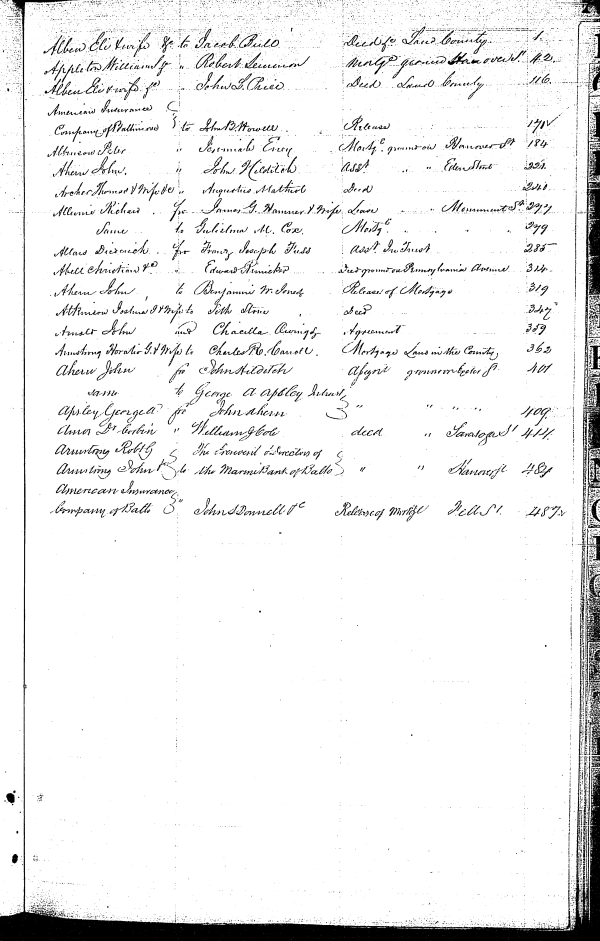 Alben Eli & wife &c to Jacob Bull Deed for Land County. 1.
Appleton William G " Robert Lemmon Mortge ground Hanover St 42.
Alben Eli & wife for " John L. Price Deed Land County 116.
American Insurance
Company of Baltimore to John B. Howell Release 171
Atkinson Peter " Jeremiah Mortge ground on Hanover St 184
Ahern John. " John Hilditch Asst " " Eden Street 221.
Archer Thomas & Wife &c " Augustus Deed 240.
Richard for James G. Hanner & Wife Lease Monument St 277
Same to M. Cox. Mortge " " 279
Diedrich for Franz Joseph Fuss Asst In Trust 285
Abell Christian &c " Edward Deed ground on Pennsylvania Avenue 314.
Ahern John, to Benjamin W. Jones Release of Mortgage 319
Atkinson Joshua & Wife to Seth Stone Deed 347
Arnold John and Owings Agreement 359
Armstrong Horatio G. & Wife to Charles R. Carroll. Mortgage Land in the County, 362
Ahern John for John Hilditch ground on St. 401
same to George A Apsley In trust
Apsley George A for John Ahern " " " " 409.
Amos Dr Corbin " William G Cole deed " Saratoga St 414.
Armstrong Robt G The President & Directors of
Armstrong John &c to the Marine Bank of Balto " " Hanover St 484
American Insurance
Company of Balto " John S Donnell &c Release of Mortge Fell St. 487